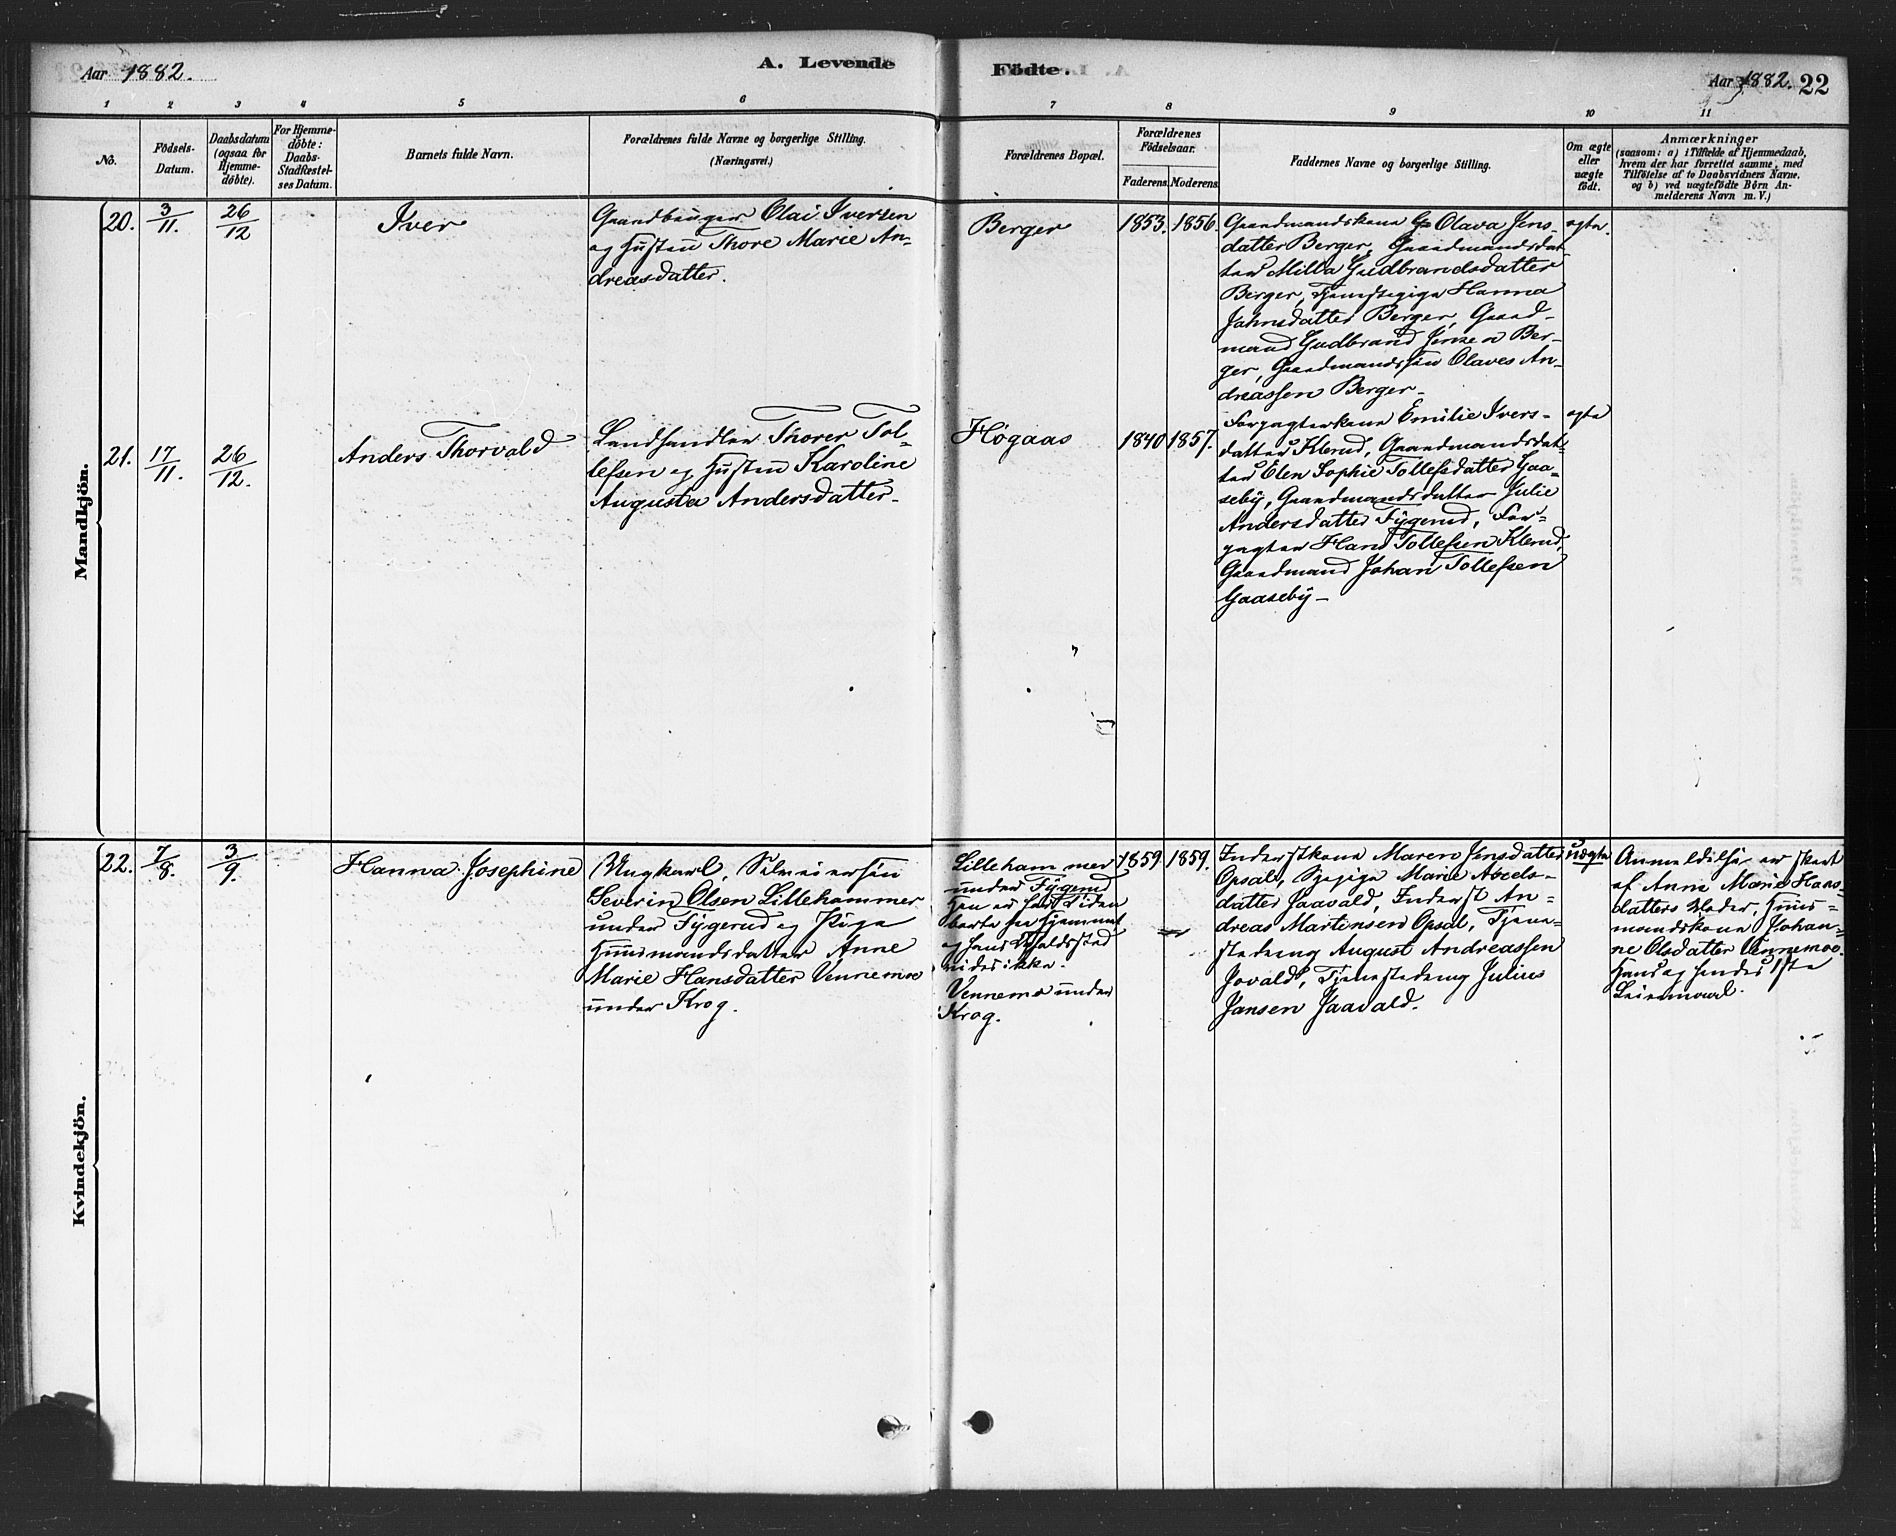 Aar 1882.
A. Levende
Födte.
Aar 1882. 22
1 2 3 4 5 6 7 8 9 10 11
No.
Födsels-
Datum.
Daabsdatum
(ogsaa for
Hjemme-
döbte).
For Hjemme-
döbte:
Daabs-
Stadfæstel-
ses Datum.
Barnets fulde Navn.
Forældrenes fulde Navne og borgerlige Stilling.
(Næringsvei.)
Forældrenes Bopæl.
Forældrenes
Födselsaar.
Faderens. Moderens.
Faddernes Navne og borgerlige Stilling.
Om ægte
eller
uægte
födt.
Anmærkninger
(saasom: a) i Tilfælde af Hjemmedaab,
hvem der har forrettet samme, med
Tilföielse af to Daabsvidners Navne.
og b) ved uægtefödte Börn An-
melderens Navn m. V.)
Mandkjön.
20.
3/11.
26/12
Iver
Gaardbruger Olai Iversen
og Hustru Thore Marie An-
dreasdatter.
Berger
1853. 1856.
Gaardmandskone Olava Jens-
datter Berger, Gaardmandsdat-
ter Milla Gudbrandsdatter
Berger, Hanna
Johnsdatter Berger, Gaard-
mand Gudbrand Jensen Ber-
ger, Gaardmandssön Olaves An-
dreassen Berger.
ægte.
21.
17/11.
26/12.
Anders Thorvald
Landhandler Thorer Tol-
lefsen og Hustru Karoline
Augusta Andersdatter.
Høgaas
1840 1857.
Forpagterkone Emilie Ivers-
datter Klerud, Gaardmandsdat-
ter Elen Sophie Tollefsdatter Gaa-
seby, Gaardmandsdatter Julie
Andersdatter Fÿgerud, For-
pagter Hans Tollefsen Klerud,
Gaardmand Johan Tollefsen
Gaaseby
ægte
Kvindekjön.
22.
7/8.
3/9.
Hanna Josephine
Ungkarl, Selveiersön
Severin Olsen Lillehammer
under Fÿgerud og Pige
Huusmandsdatter Anne
Marie Hansdatter Vennemoe
under Krog.
Lillehammer
under Fÿgerud
borte fra Hjemmet
og hans Opholdssted
vides ikke.
Vennemo under
Krog.
1859 1859.
Inderstkone Maren Jensdatter
Opsal, Pige Marie Axels-
datter Jaavald, Inderst An-
dreas Martinsen Opsal, Tjene-
stedreng August Andreassen
Jovald, Tjenestedreng Julius
Jansen Jaavald.
uægte
Anmeldelsen er skeet
af Anne Marie Hans-
datters Moder, Huus-
mandskone Johan-
ne Olsdatter Vennemoe.
Hans og hendes 1ste
Leiermaal.